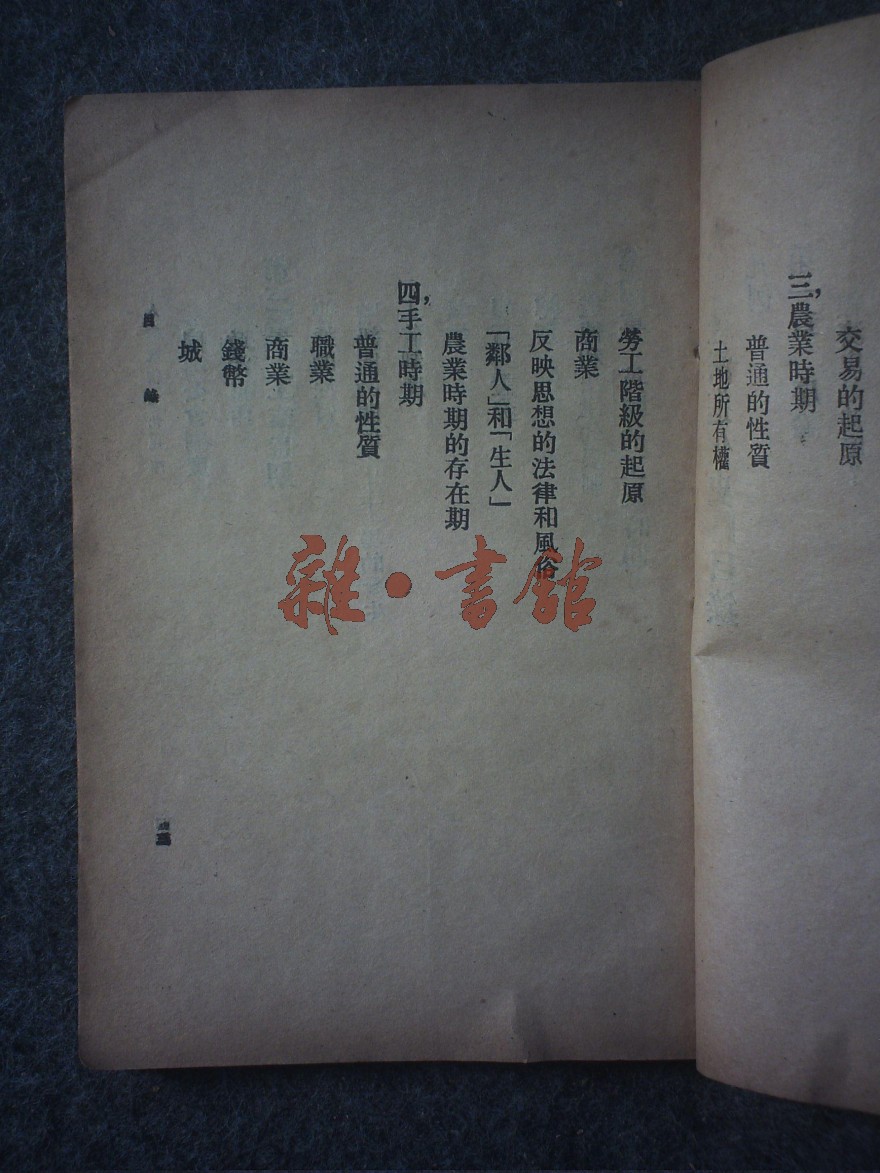 交易的起原
三，農業時期
普通的性質
土地所有權
勞工階級的起原
商業
反映思想的法律和風俗
「鄰人」和「生人」
農業時期的存在期
四，手工時期
普通的性質
職業
商業
錢幣
城
目 錄
三
雜·書館